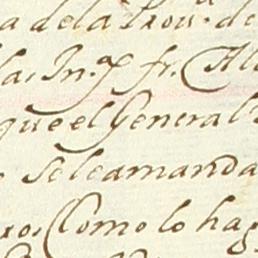 a de la Prou.ª de
las, Yn.ª fr. Al
que el General
Seleamanda
ros, Como lo hag